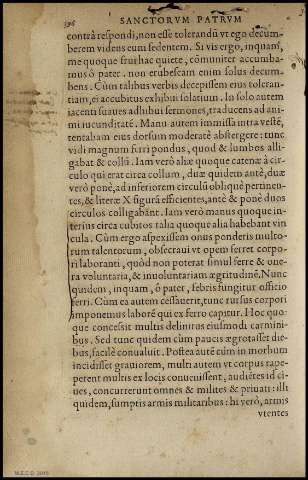 396 SANCTORVM PATRVM
contrà respondi, non esse tolerandū vt ego decum-
berem videns eum sedentem. Si vis ergo, inquam,
me quoque frui hac quiete, cōmuniter accumba-
mus ô pater. non erubescam enim solus decum-
bens. Cùm talibus verbis decepissem eius toleran-
tiam, ei accubitus exhibui solatium. In solo autem
iacenti suaues adhibui sermones, traducens ad ani-
mi iucunditatē. Manu autem immissa intra vestē,
tentabam eius dorsum moderatè abstergere: tunc
vidi magnum ferri pondus, quod & lumbos alli-
gabat & collū. Iam verò aliæ quoque catenæ à cir-
culo qui erat circa collum, duæ quidem antè, duæ
verò ponè, ad inferiorem circulū obliquè pertinen-
tes, & literæ X figurā efficientes, antè & ponè duos
circulos colligabāt. Iam verò manus quoque in-
terius circa cubitos talia quoque alia habebant vin
cula. Cùm ergo aspexissem onus ponderis multo-
rum talentorum, obsecraui vt opem ferret corpo-
ri laboranti, quòd non poterat simul ferre & one-
ra voluntaria, & inuoluntariam ægritudinē. Nunc
quidem, inquam, ô pater, febris fungitur officio
ferri. Cùm ea autem cessauerit, tunc rursus corpori
imponemus laborē qui ex ferro capitur. Hoc quo-
que concessit multis delinitus eiusmodi carmini-
bus. Sed tunc quidem cùm paucis ægrotasset die-
bus, facilè conualuit. Postea autē cùm in morbum
incidisset grauiorem, multi autem vt corpus rape-
perent multis ex locis conuenissent, audiētes id ci-
ues, concurrerunt omnes & milites & priuati: illi
quidem, sumptis armis militaribus: hi verò, armis
vtentes